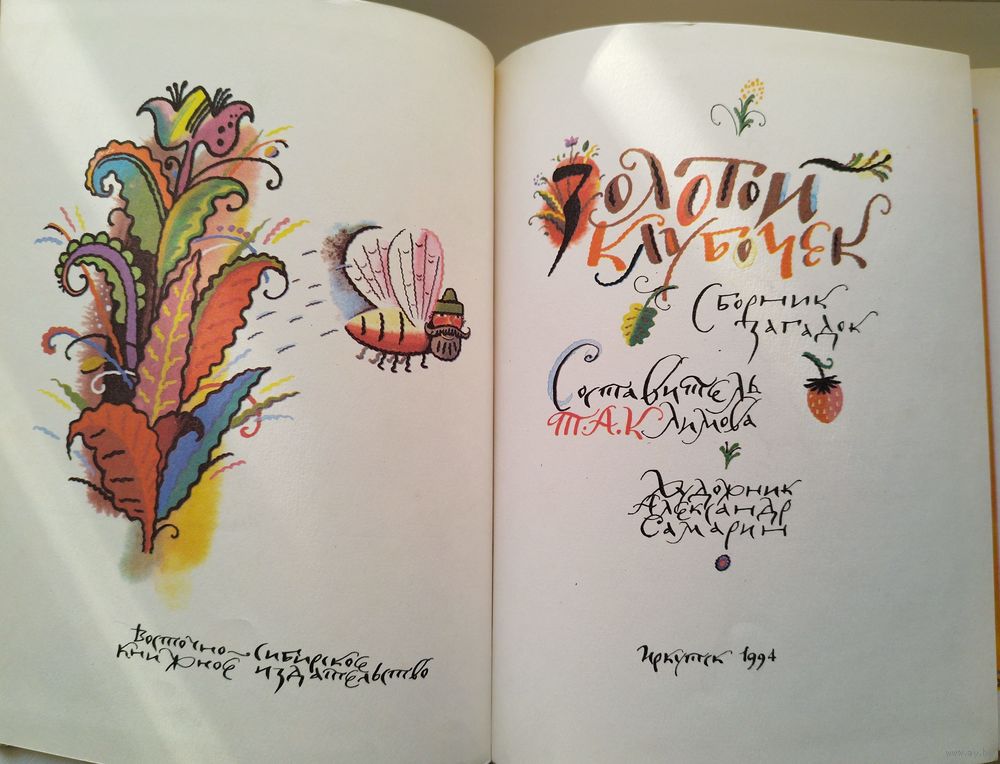 Восточно-Сибирское
книжное издательство
Золотой
клубочек
Сборник
загадок
Составитель
Т.А.Климова
Художник
Александр
Самарин
Иркутск 1994